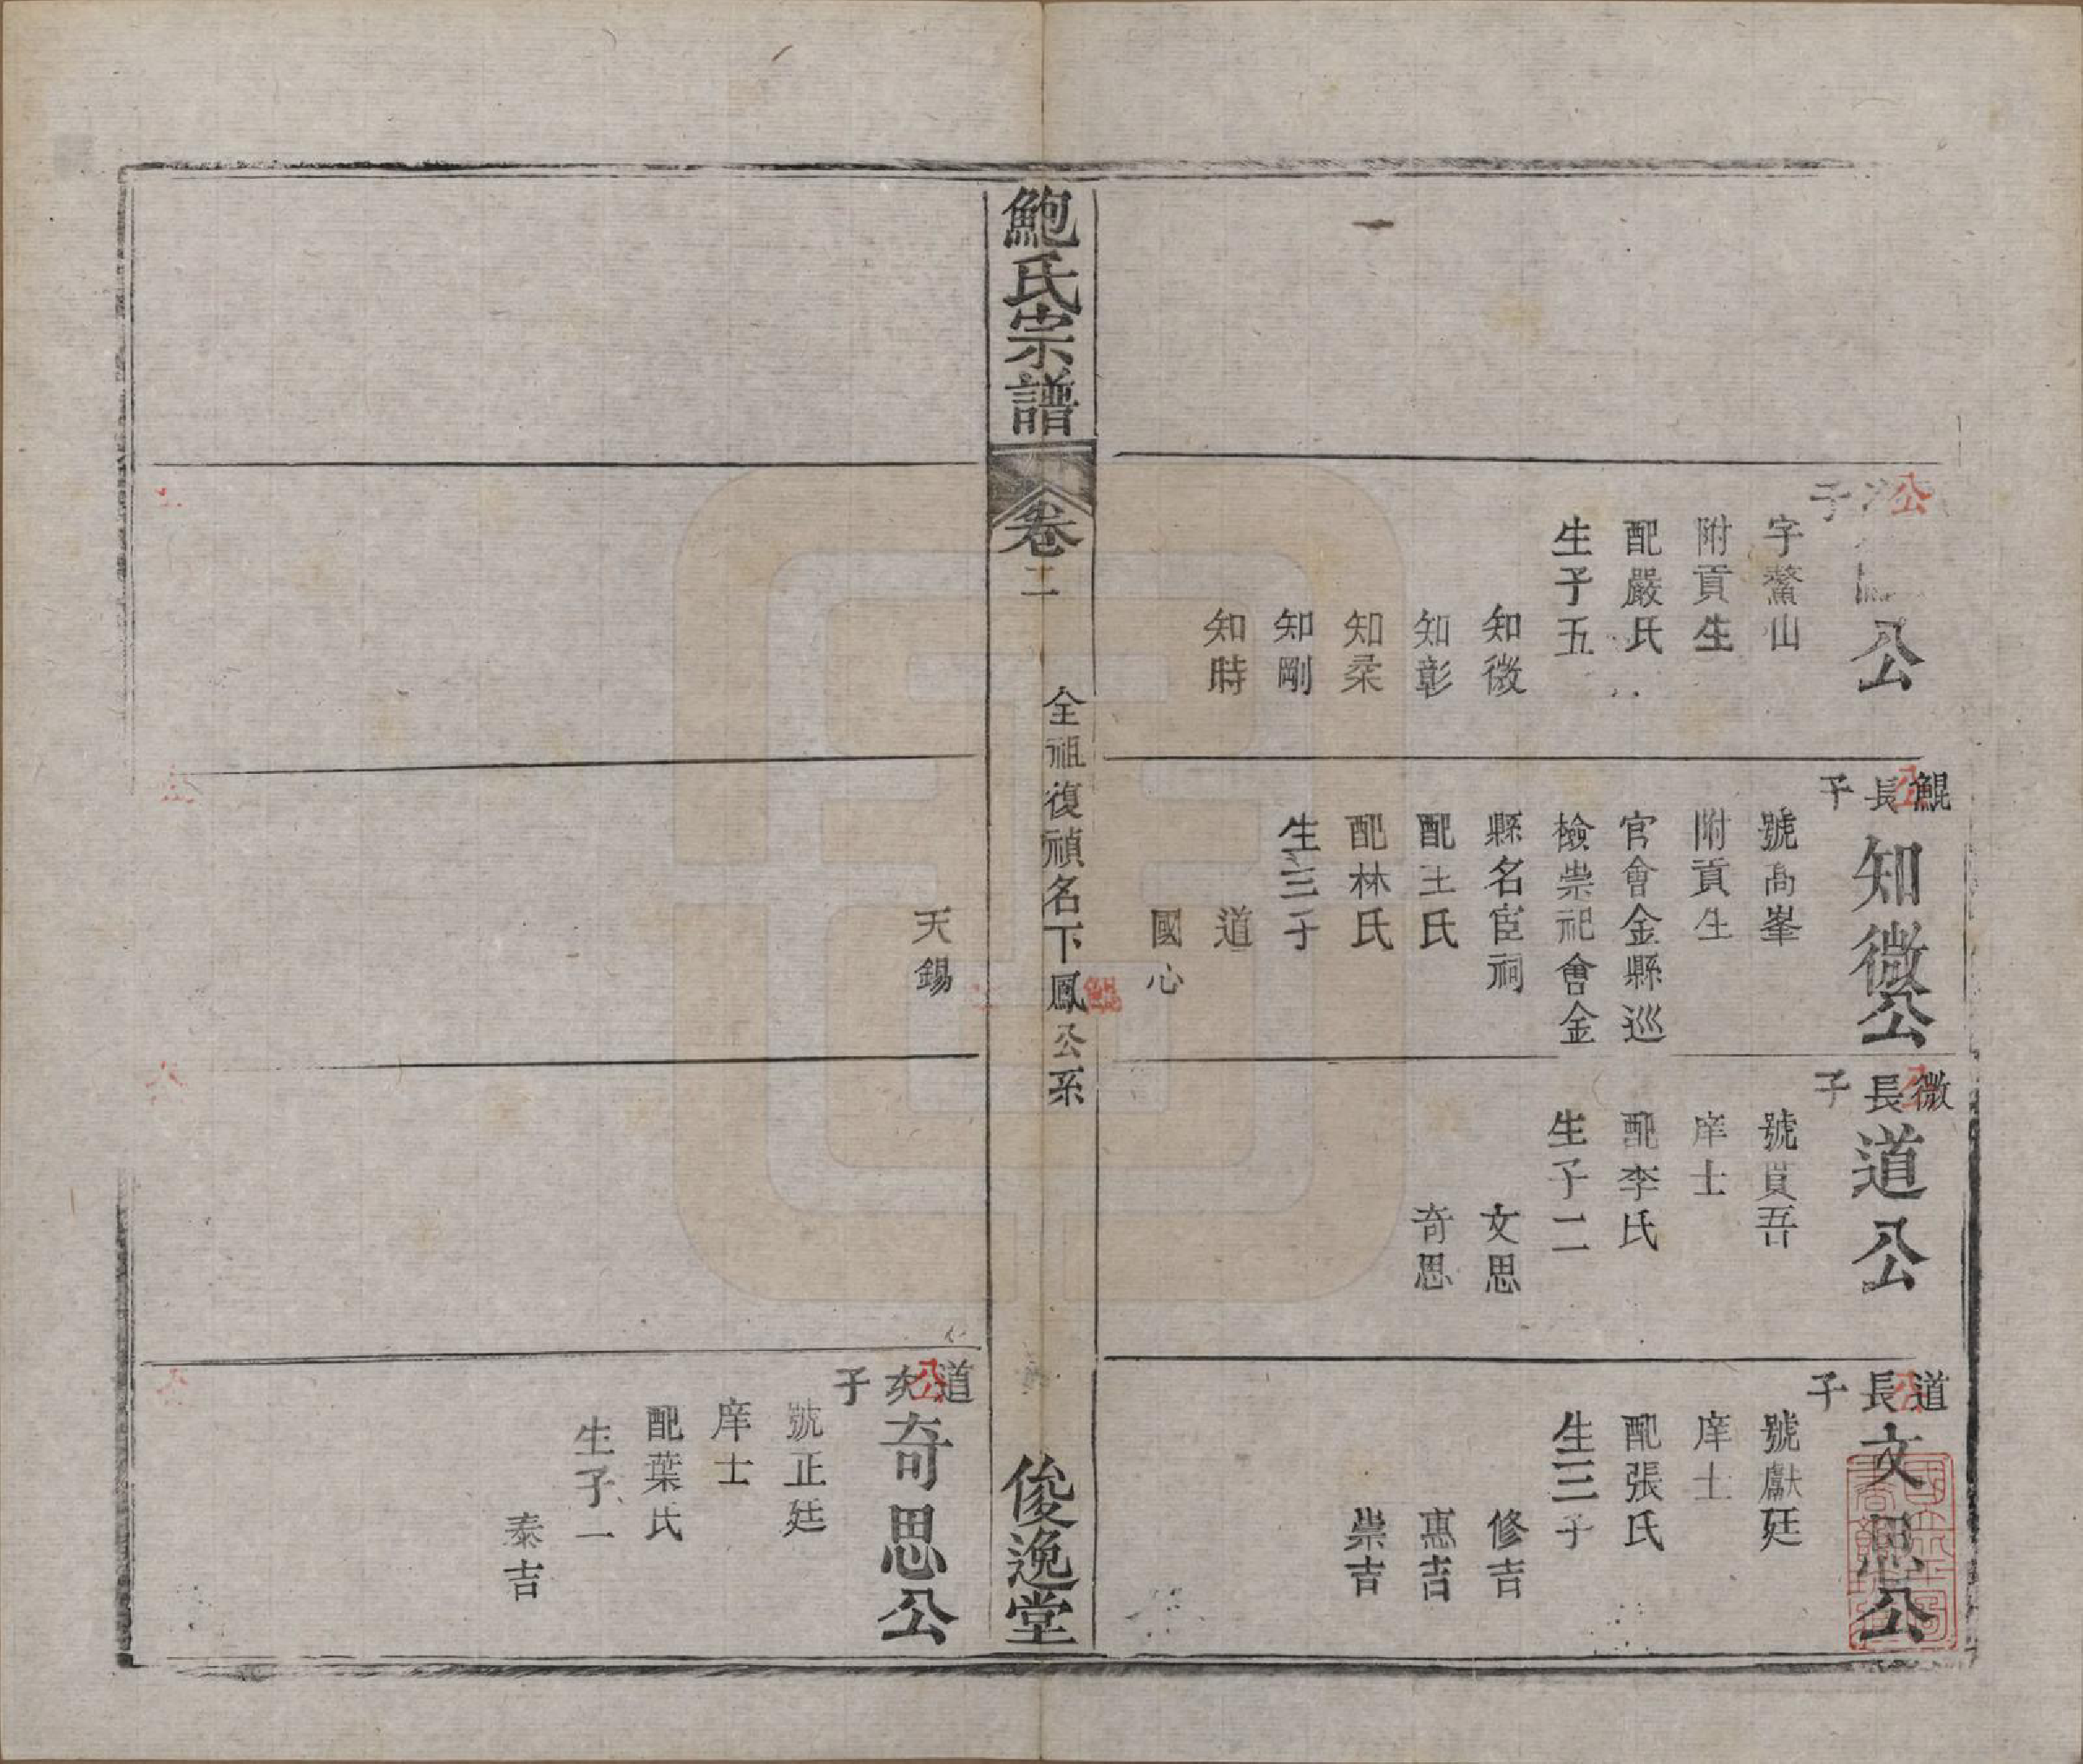 子
公
字鰲山
附貢生
配嚴氏
生子五
知微
知彰
知柔
知剛
知時
鯤公長子
知微公
號高峯
附貢生
官會金縣巡
檢崇祀會金
縣名宦祠
配王氏
配林氏
生三子
道
國心
天錫
微公長子
道公
號貫吾
庠士
配李氏
生子二
文思
奇思
道公長子
文思公
號獻廷
庠士
配張氏
生三子
修吉
惠吉
崇吉
鮑氏宗譜
卷二
全祖復禎名下鳳公系
俊逸堂
道公次子
奇思公
號正廷
庠士
配葉氏
生子一
泰吉